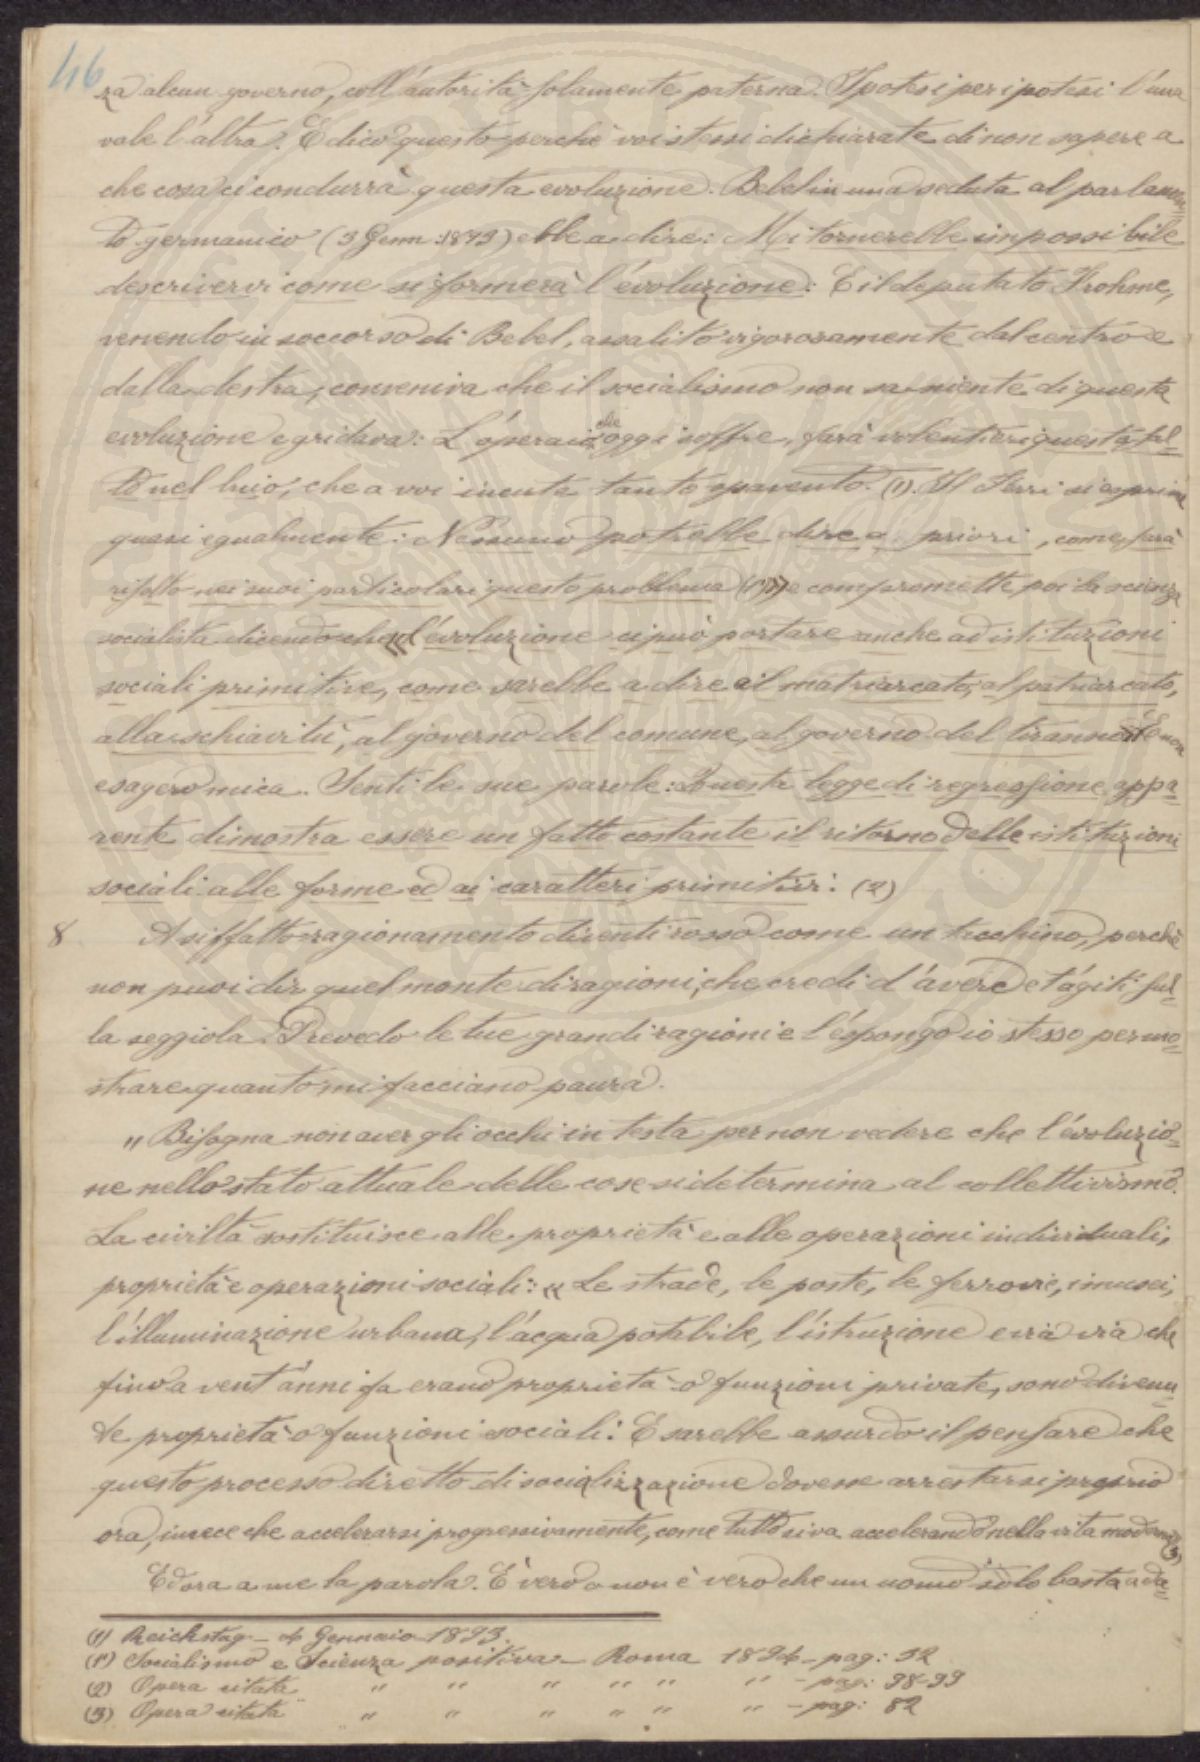 46
za alcun governo, coll'autorità solamente paterna. Ipotesi per ipotesi l'una
vale l'altra. E dico questo perchè voi stessi dichiarate di non sapere a
che cosa ci condurrà questa evoluzione. Bebel in una seduta al parlamen=
to germanico (3 Genn: 1893) ebbe a dire: Mi tornerebbe impossibile
descrivervi come si formerà l'evoluzione: E il deputato Frohme,
venendo in soccorso di Bebel, assalito vigorosamente dal centro e
dalla destra, conveniva che il socialismo non sa niente di questa
evoluzione e gridava: L'operaio che oggi soffre, farà volentieri questo sal=
to nel buio, che a voi incute tanto spavento. (1). Il Ferri si esprime
quasi egualmente: Nessuno potrebbe dire a priori, come sarà
risolto nei suoi particolari questo problema (1') e compromette poi la scienza
socialista dicendo che l'evoluzione ci può portare anche ad istituzioni
sociali primitive, come sarebbe a dire al matriarcato, al patriarcato,
alla schiavitù, al governo del comune, al governo del tiranno. E non
esagero mica. Senti le sue parole: Questa legge di regressione appa=
rente dimostra essere un fatto costante il ritorno delle istituzioni
sociali alle forme ed ai caratteri primitivi: (2)
8 A siffatto ragionamento diventi rosso come un tacchino, perchè
non puoi dir quel monte di ragioni, che credi d'avere e t'agiti sul=
la seggiola. Prevedo le tue grandi ragioni e l'espongo io stesso per mo=
strare quanto mi facciano paura.
„ Bisogna non aver gli occhi in testa per non vedere che l'evoluzio=
ne nello stato attuale delle cose si determina al collettivismo.
La civiltà sostituisce alle proprietà e alle operazioni individuali,
proprietà e operazioni sociali: „ Le strade, le poste, le ferrovie, i musei,
l'illuminazione urbana, l'acqua potabile, l'istruzione e via via che
fino a vent'anni fa erano proprietà o funzioni private, sono divenu=
te proprietà o funzioni sociali: E sarebbe assurdo il pensare che
questo processo diretto di socializzazione dovesse arrestarsi proprio
ora, invece che accelerarsi progressivamente, come tutto si va accelerando nella vita moderna (3)
Ed ora a me la parola. È vero o non è vero che un uomo solo basta a da=
(1) Reichstag – 4 Gennaio 1893.
(1') Socialismo e Scienza positiva – Roma 1894 – pag: 92
(2) Opera citata „ „ „ „ „ „ – pag: 98-99
(3) Opera citata „ „ „ „ „ „ – pag: 82